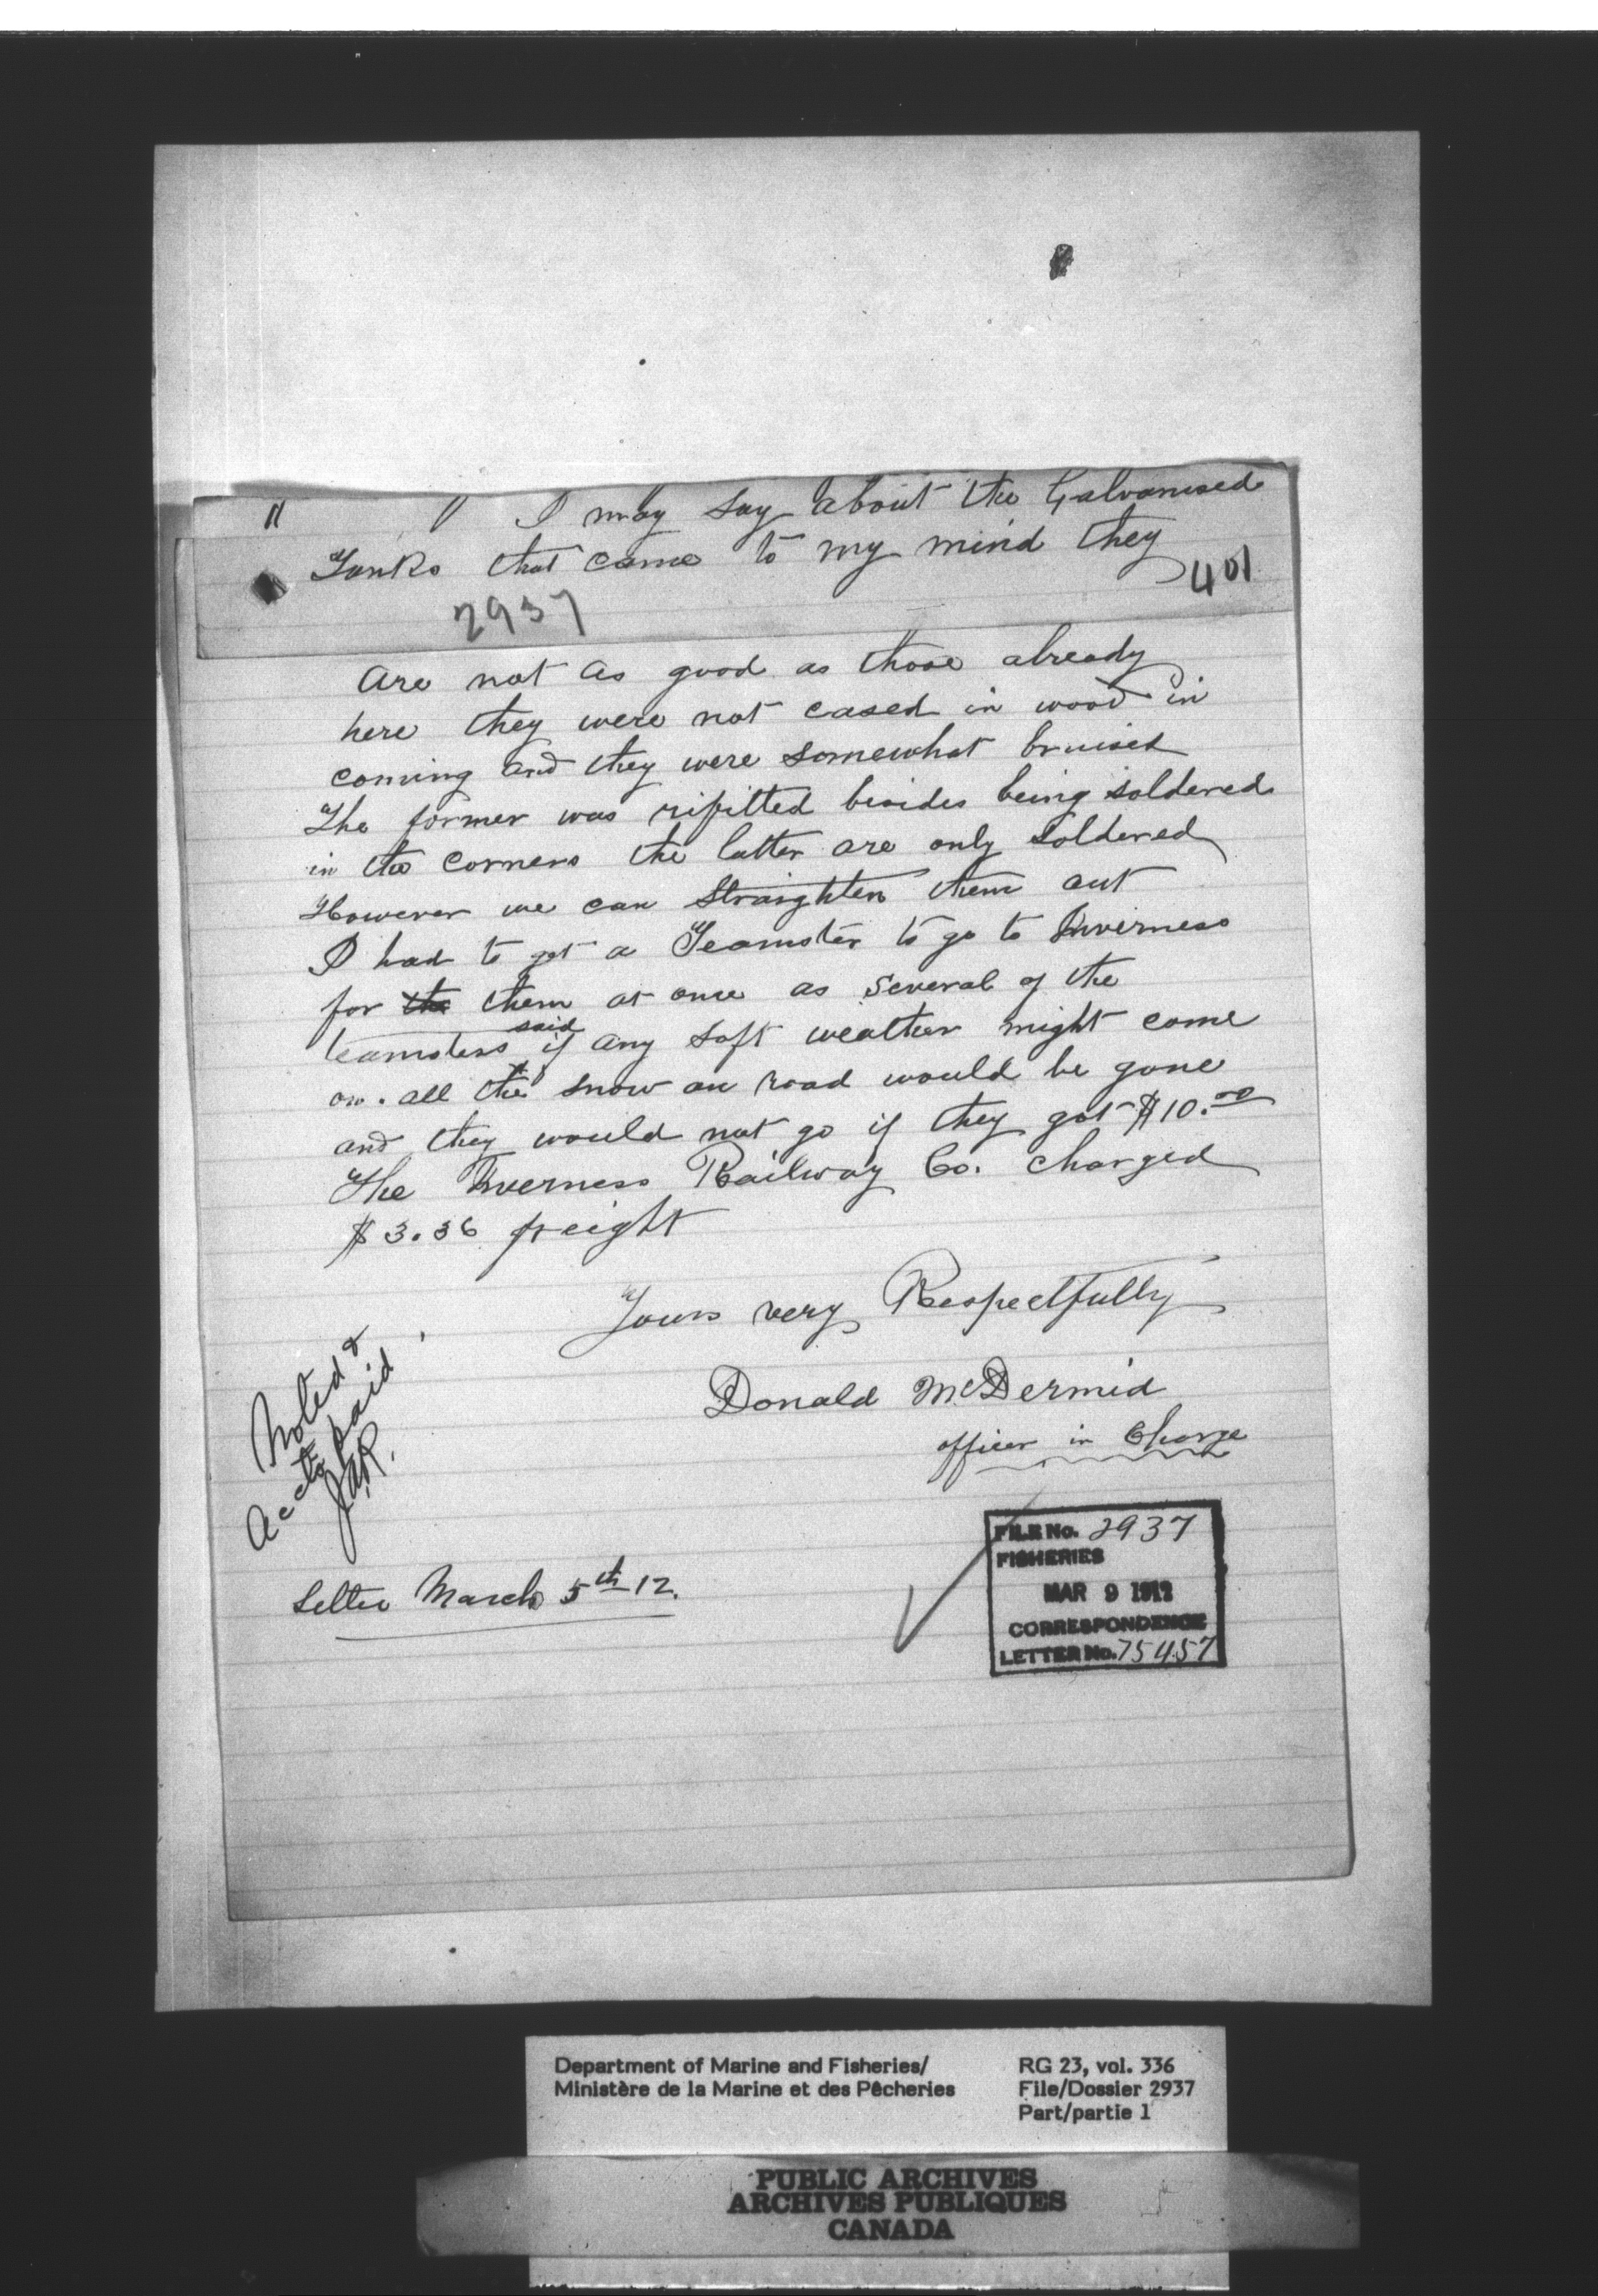 I may say about the Galvanised
Tanks that came to my mind they
401
2937
are not as good as those already
here they were not cased in wood in
coming and they were somewhat bruised
The former was rifitted besides being soldered
in the corners the latter are only soldered
However we can straighten them out
I had to get a Teamster to go to Inverness
for the them at once as several of the
teamsters said if any soft weather might come
on. all the snow on road would be gone
and they would not go if they got $10.00
The Inverness Railway Co. charged
$3.36 freight
Yours very Respectfully
Donald McDermid
officer in Charge
Noted &
Accts paid
J.A.R.
Letter March 5th 12.
FILE No. 2937
FISHERIES
MAR 9 1912
CORRESPONDENCE
LETTER No. 75457
Department of Marine and Fisheries/
Ministère de la Marine et des Pêcheries
RG 23, vol. 336
File/Dossier 2937
Part/partie 1
PUBLIC ARCHIVES
ARCHIVES PUBLIQUES
CANADA